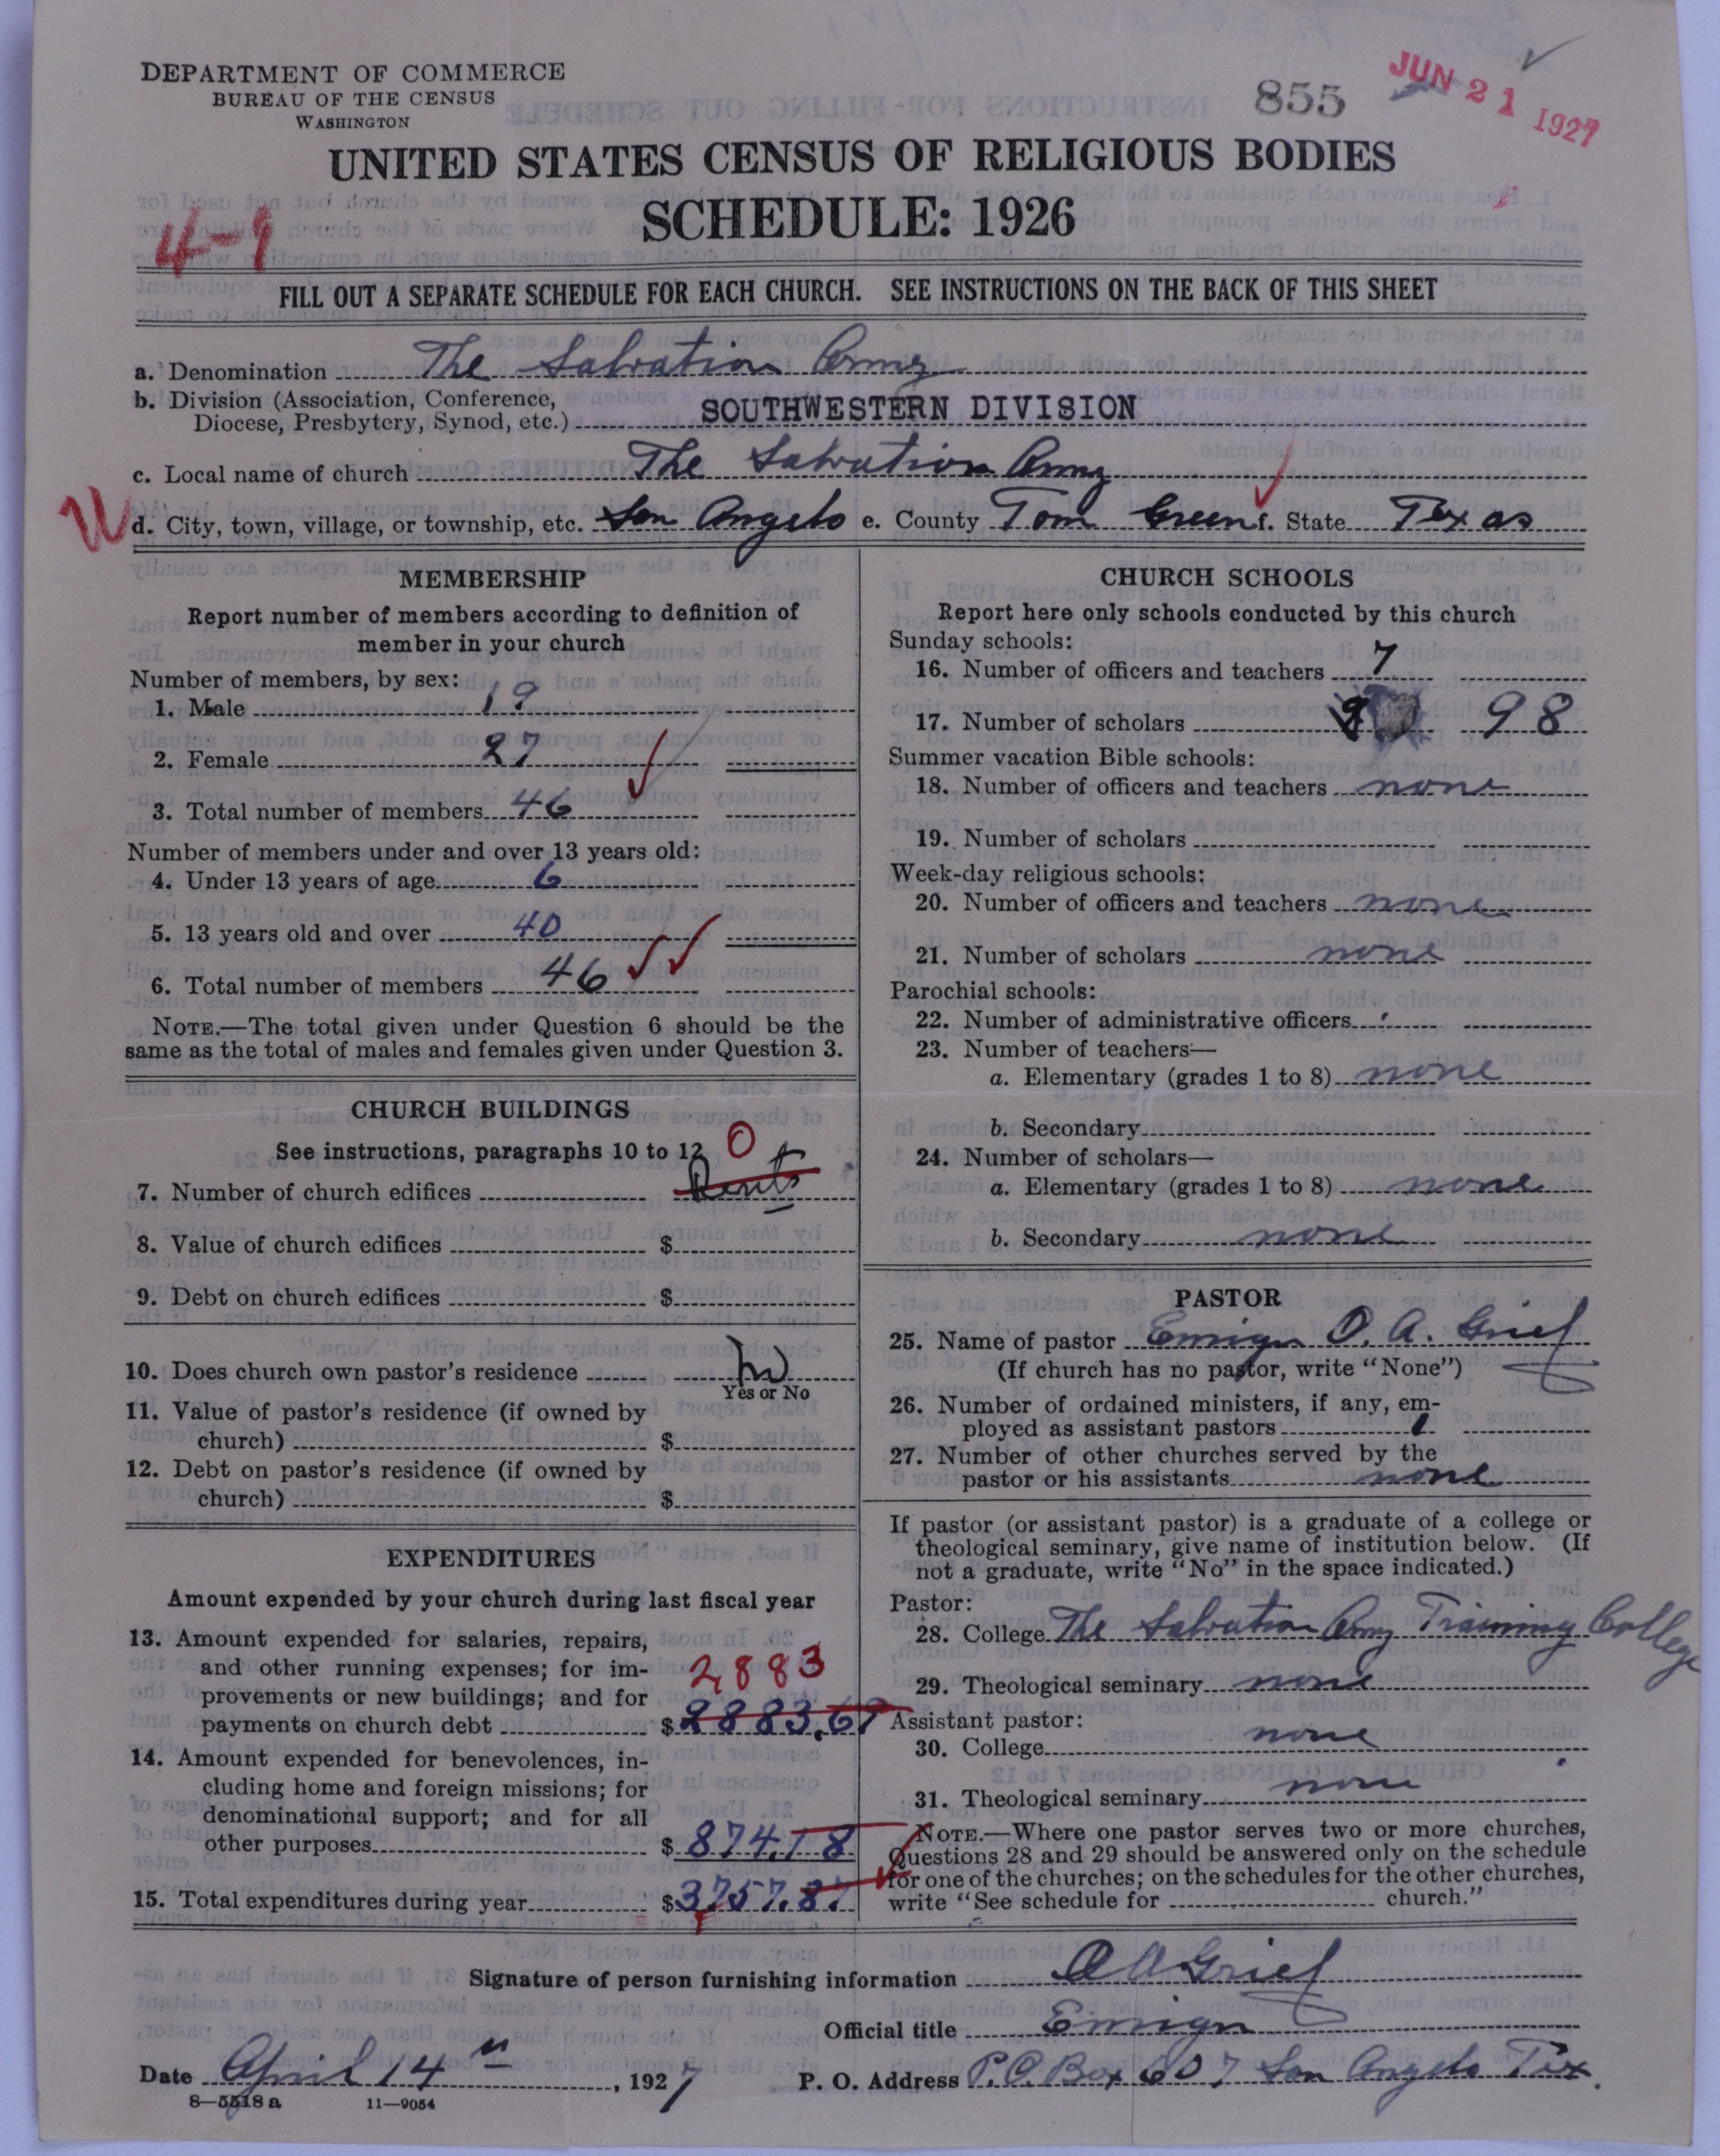 DEPARTMENT OF COMMERCE
BUREAU OF THE CENSUS
WASHINGTON
855
JUN 21 1927
UNITED STATES CENSUS OF RELIGIOUS BODIES
SCHEDULE: 1926
4-9
FILL OUT A SEPARATE SCHEDULE FOR EACH CHURCH. SEE INSTRUCTIONS ON THE BACK OF THIS SHEET
a. Denomination The Salvation Army
b. Division (Association, Conference,
Diocese, Presbytery, Synod, etc.) SOUTHWESTERN DIVISION
c. Local name of church The Salvation Army
U d. City, town, village, or township, etc. San Angelo e. County Tom Green f. State Texas
MEMBERSHIP
Report number of members according to definition of
member in your church
Number of members, by sex:
1. Male 19
2. Female 27
3. Total number of members 46
Number of members under and over 13 years old:
4. Under 13 years of age 6
5. 13 years old and over 40
6. Total number of members 46
NOTE.—The total given under Question 6 should be the
same as the total of males and females given under Question 3.
CHURCH BUILDINGS
See instructions, paragraphs 10 to 12
0
7. Number of church edifices Rents
8. Value of church edifices $
9. Debt on church edifices $
10. Does church own pastor's residence No
Yes or No
11. Value of pastor's residence (if owned by
church) $
12. Debt on pastor's residence (if owned by
church) $
EXPENDITURES
Amount expended by your church during last fiscal year
13. Amount expended for salaries, repairs,
and other running expenses; for im-
2883
provements or new buildings; and for
payments on church debt $2883.69
14. Amount expended for benevolences, in-
cluding home and foreign missions; for
denominational support; and for all
other purposes $874.18
15. Total expenditures during year $3757.87
CHURCH SCHOOLS
Report here only schools conducted by this church
Sunday schools:
16. Number of officers and teachers 7
17. Number of scholars 98
Summer vacation Bible schools:
18. Number of officers and teachers none
19. Number of scholars
Week-day religious schools:
20. Number of officers and teachers none
21. Number of scholars none
Parochial schools:
22. Number of administrative officers
23. Number of teachers—
a. Elementary (grades 1 to 8) none
b. Secondary
24. Number of scholars—
a. Elementary (grades 1 to 8) none
b. Secondary none
PASTOR
25. Name of pastor Ensign O. A. Grief
(If church has no pastor, write "None")
26. Number of ordained ministers, if any, em-
ployed as assistant pastors 1
27. Number of other churches served by the
pastor or his assistants none
If pastor (or assistant pastor) is a graduate of a college or
theological seminary, give name of institution below. (If
not a graduate, write "No" in the space indicated.)
Pastor:
28. College The Salvation Army Training College
29. Theological seminary none
Assistant pastor:
30. College none
31. Theological seminary none
NOTE.—Where one pastor serves two or more churches,
Questions 28 and 29 should be answered only on the schedule
for one of the churches; on the schedules for the other churches,
write "See schedule for church."
Signature of person furnishing information O A Grief
Official title Ensign
Date April 14th, 1927 P. O. Address P.O. Box 607 San Angelo Tex.
8—5518 a 11—9054